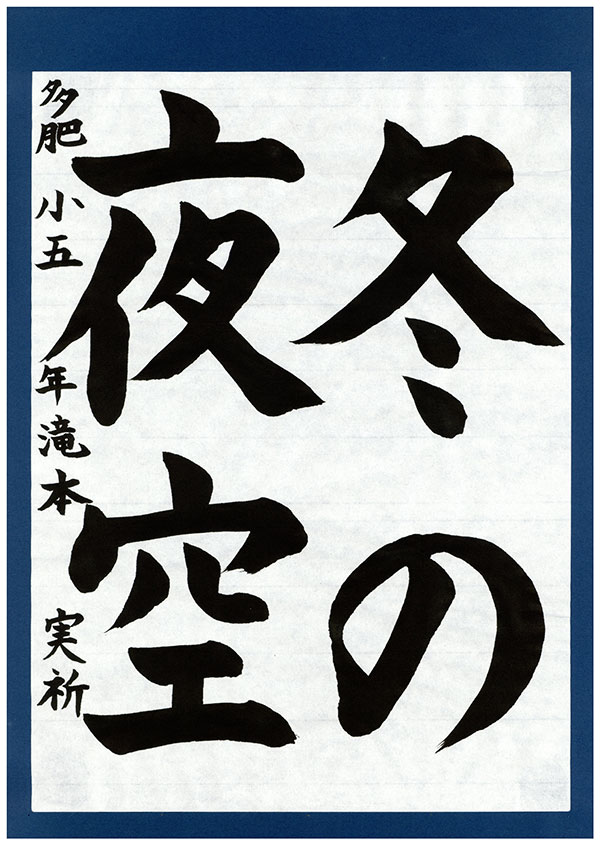 冬の
夜空
多肥小五年滝本実祈